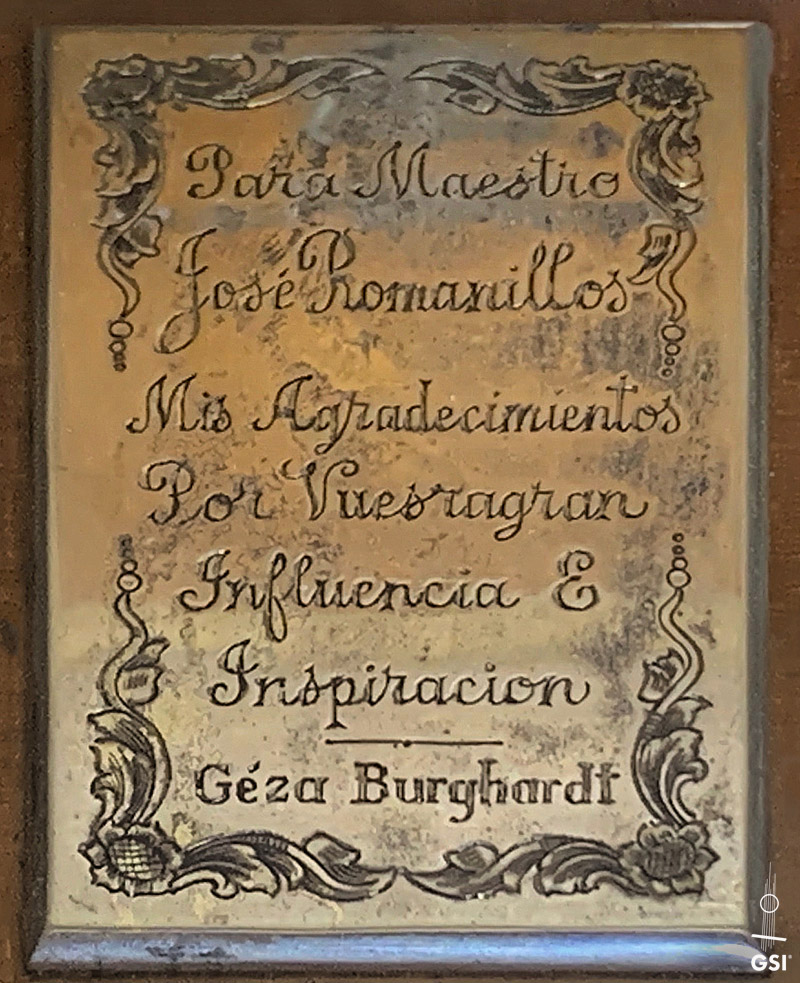 Para Maestro
José Romanillos
Mis Agradecimientos
Por Vuesragran
Influencia E
Inspiracion
Géza Burghardt
GSI